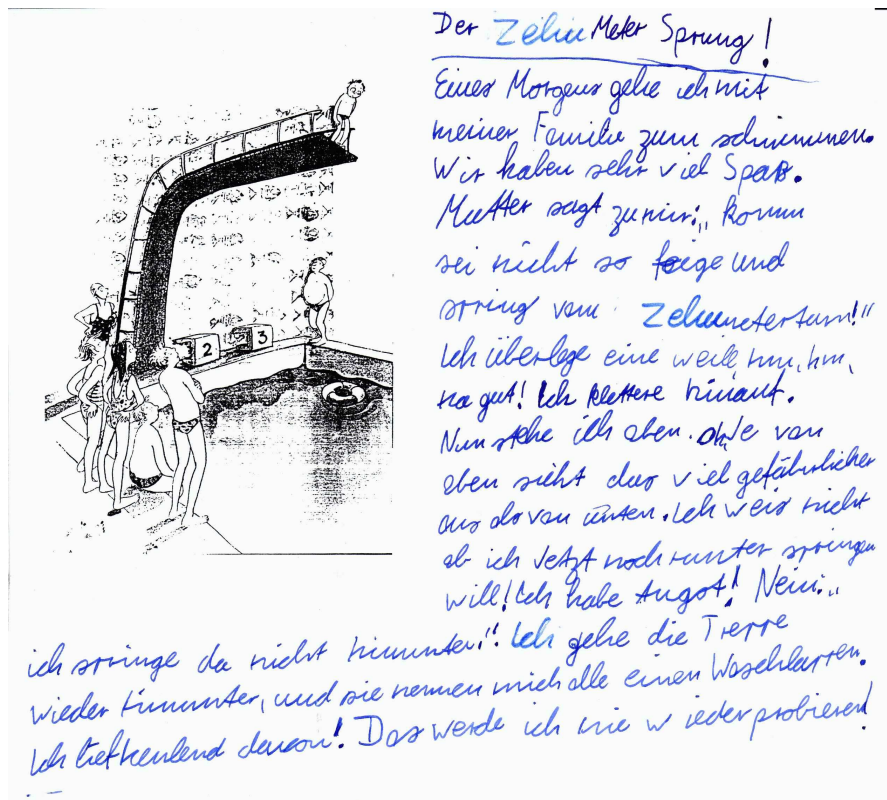 Der Zehn Meter Sprung!
Eines Morgens gehe ich mit
meiner Familie zum schwimmen.
Wir haben sehr viel Spaß.
Mutter sagt zu mir: „Komm
sei nicht so feige und
spring vom Zehnmeterturm!"
Ich überlege eine weile, hm, hm,
na gut! Ich klettere hinauf.
Nun stehe ich oben. Ohje von
oben sieht das viel gefährlicher
aus als von unten. Ich weis nicht
ob ich Jetzt noch runter springen
will! Ich habe Angst! Nein: „
ich springe da nicht hinunter!". Ich gehe die Treppe
wieder hinunter, und sie nennen mich alle einen Waschlappen.
Ich lief heulend davon! Das werde ich nie wieder probieren!
2
3